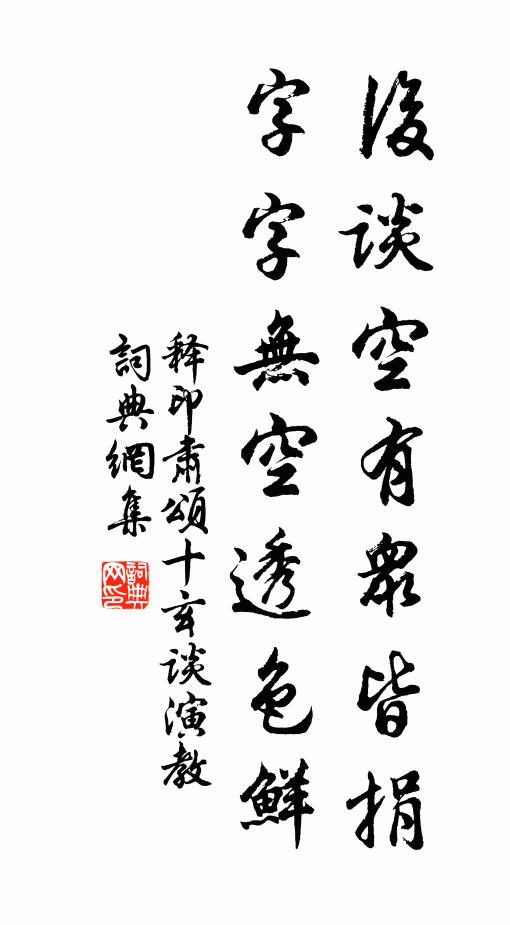 後談空有衆皆捐
字字無空透色鮮
释印肅頌十玄談演教
詞典網集
詞典网印